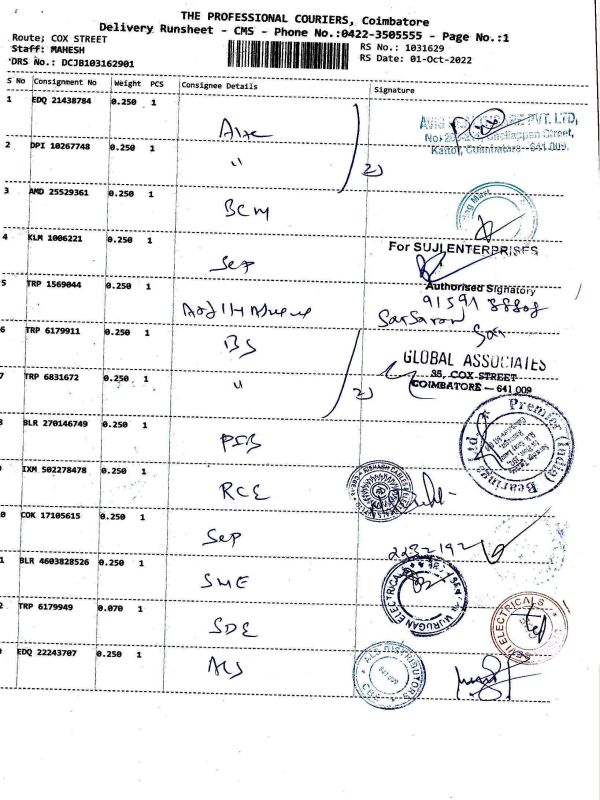 THE PROFESSIONAL COURIERS, Coimbatore
Delivery Runsheet - CMS - Phone No.:0422-3505555 - Page No.:1
Route; COX STREET
Staff: MAHESH
DRS No.: DCJB103162901
RS No.: 1031629
RS Date: 01-Oct-2022
S No Consignment No Weight PCS Consignee Details Signature
1 EDQ 21438784 0.250 1
2 DPI 10267748 0.250 1 "
2)
PVT. LTD,
Street,
Kattor, Coimbatore - 641 009.
3 AMD 25529361 0.250 1 BCM
4 KLM 1006221 0.250 1 Sep
For SUJI ENTERPRISES
Authorised Signatory
5 TRP 1569044 0.250 1
91591 88808
6 TRP 6179911 0.250 1 BS
7 TRP 6831672 0.250 1 "
2)
GLOBAL ASSOCIATES
35, COX STREET
COIMBATORE - 641 009
BLR 270146749 0.250 1 PIB
Premier (India) Bearings Ltd.
IXM 502278478 0.250 1 RCE
RISHABH CABLES
0 COK 17105615 0.250 1 Sep
1 BLR 4603828526 0.250 1 SME
MURUGAN ELECTRICALS
2 TRP 6179949 0.070 1 SDE
ELECTRICALS
EDQ 22243707 0.250 1 ALS
ALS DISTRIBUTORS
CBE